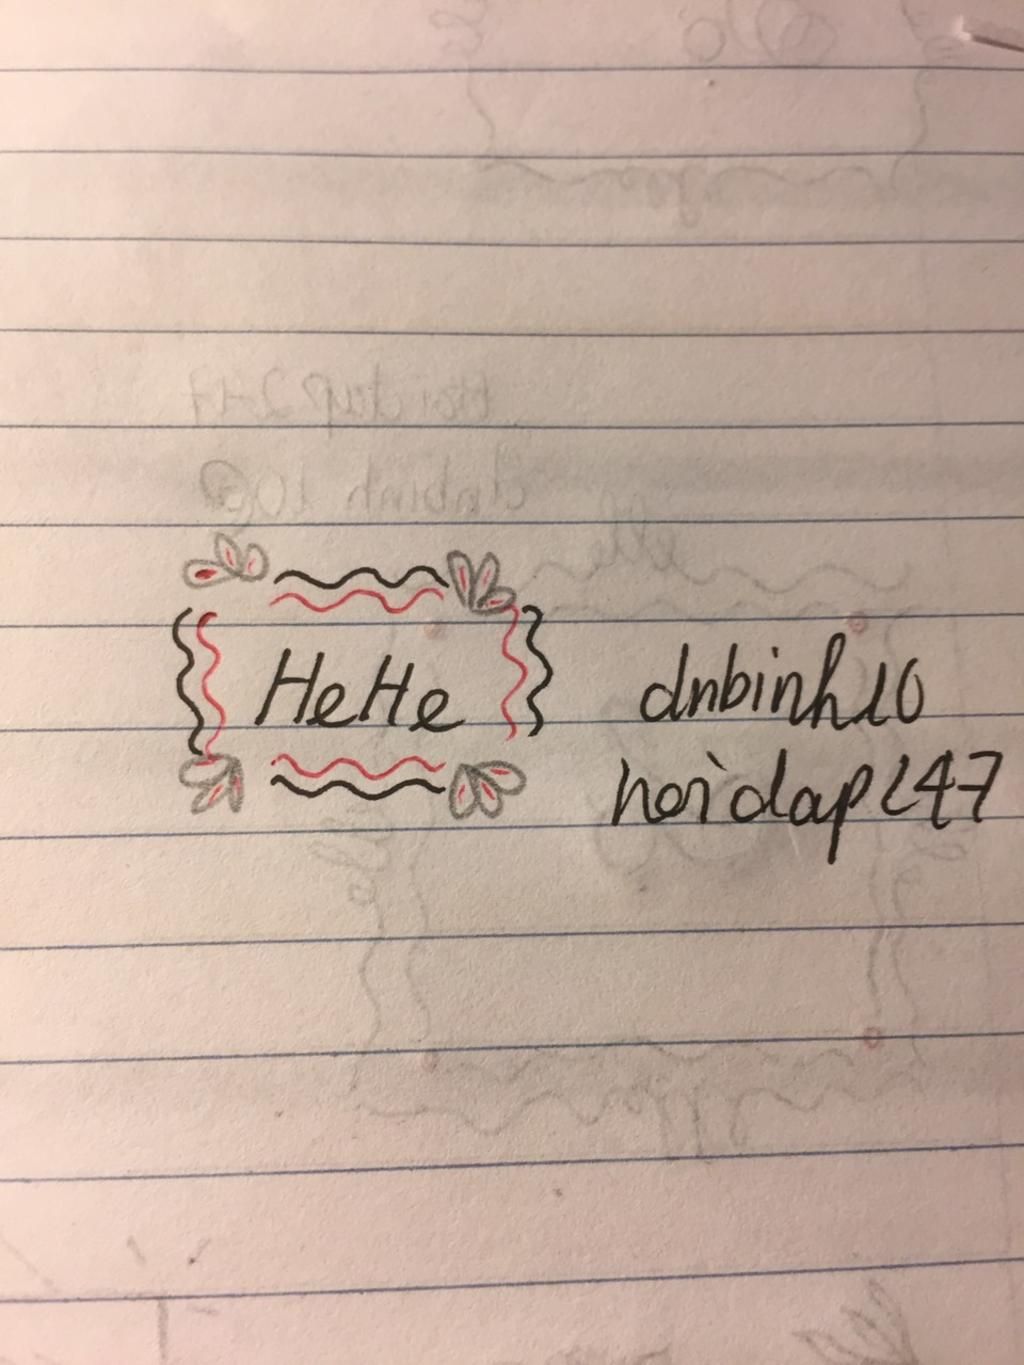 HeHe
dnbinh10
hoidap247